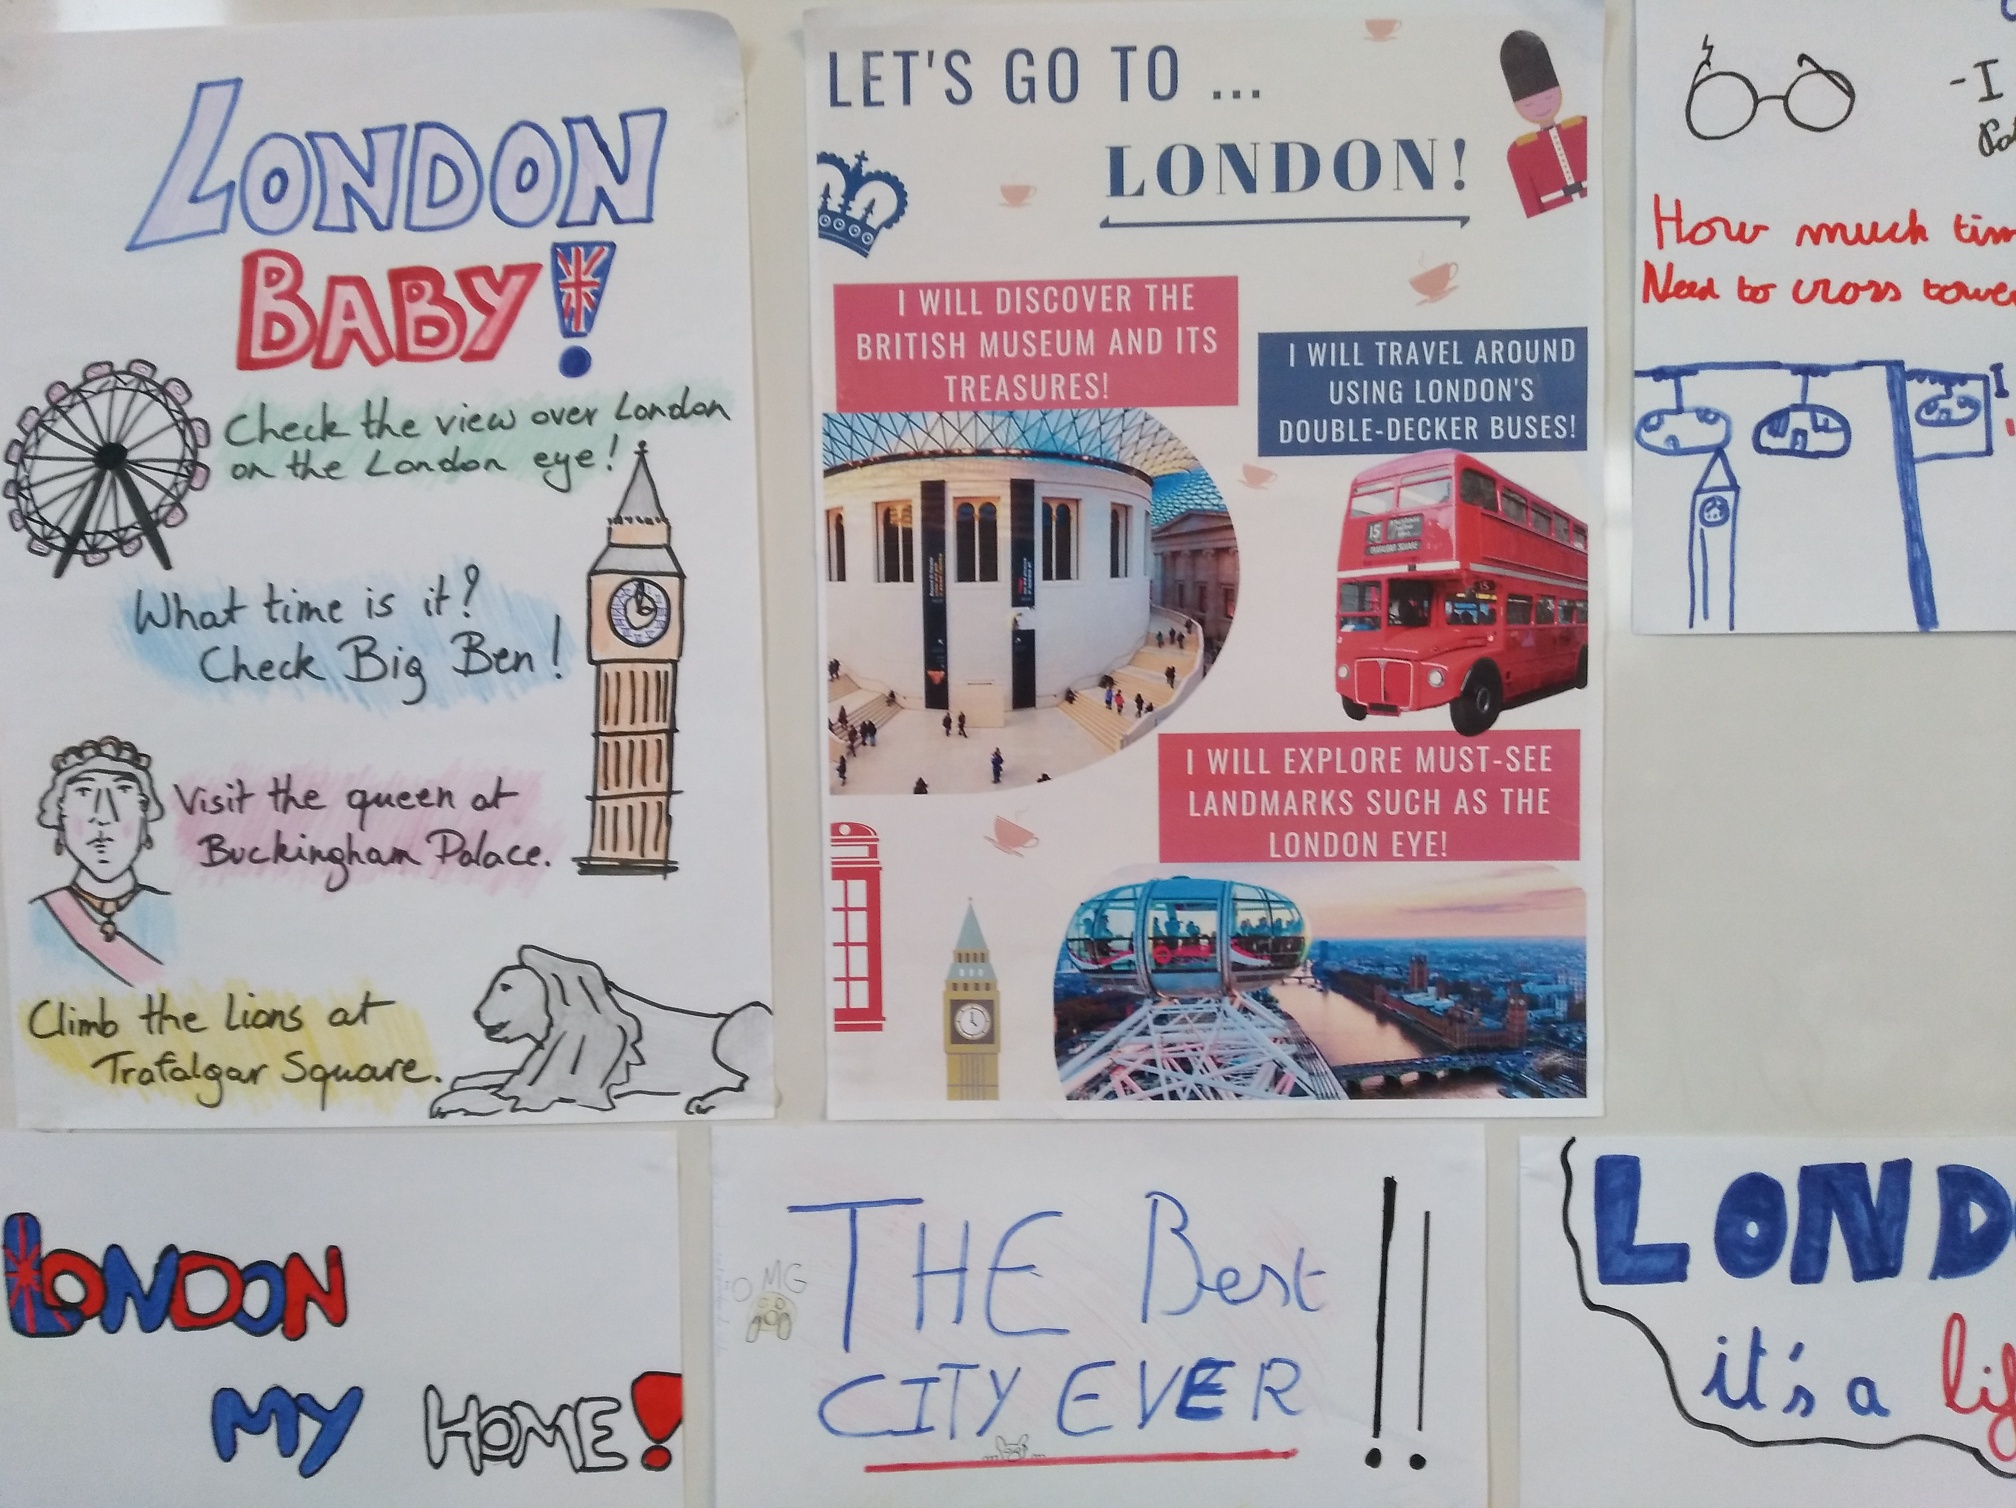 LONDON
BABY!
Check the view over London
on the London eye!
What time is it?
Check Big Ben!
Visit the queen at
Buckingham Palace.
Climb the Lions at
Trafalgar Square.
LET'S GO TO ...
LONDON!
I WILL DISCOVER THE
BRITISH MUSEUM AND ITS
TREASURES!
I WILL TRAVEL AROUND
USING LONDON'S
DOUBLE-DECKER BUSES!
15
I WILL EXPLORE MUST-SEE
LANDMARKS SUCH AS THE
LONDON EYE!
-I
How much tim
Need to cross towe
I
LONDON
MY HOME!
OMG
THE Best
CITY EVER !!
LOND
it's a lif